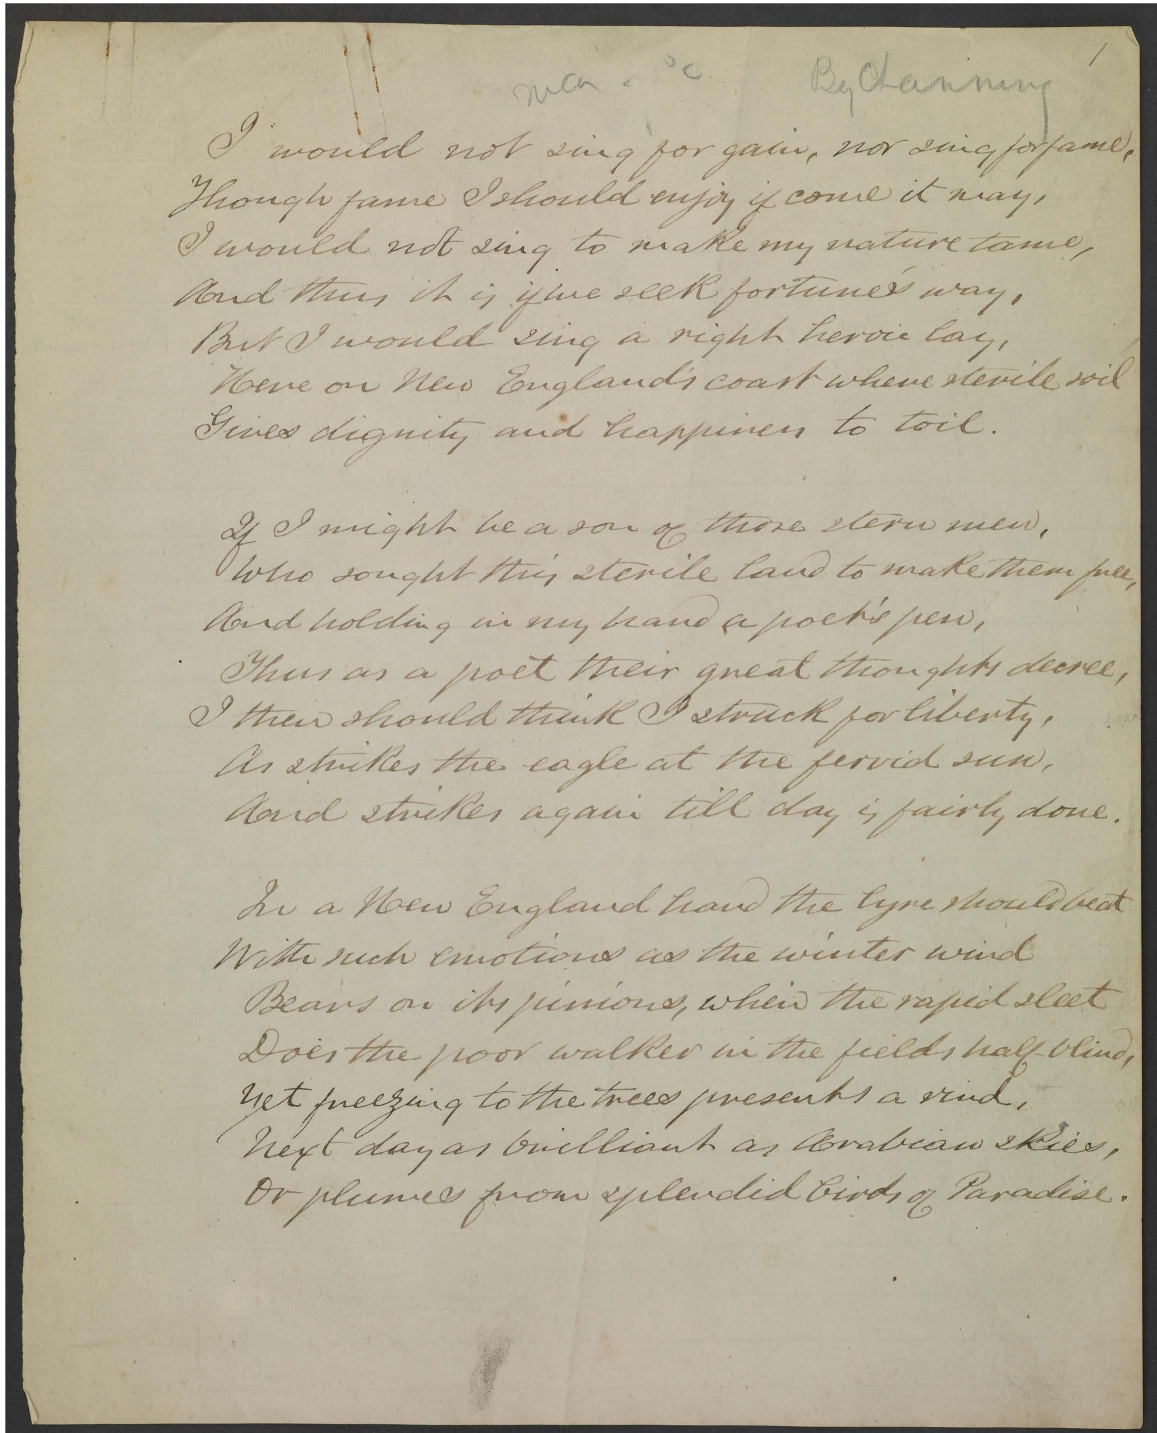 1
By Channing
I would not sing for gain, nor sing for fame,
Though fame I should enjoy if come it may,
I would not sing to make my nature tame,
And thus it is if we seek fortune's way,
But I would sing a right heroic lay,
Here on New England's coast where sterile soil
Gives dignity and happiness to toil.
If I might be a son of those stern men,
Who sought this sterile land to make them free,
And holding in my hand a poet's pen,
Thus as a poet their great thoughts decree,
I then should think I struck for liberty,
As strikes the eagle at the fervid sun,
And strikes again till day is fairly done.
In a New England hand the lyre should beat
With such emotions as the winter wind
Bears on its pinions, when the rapid sleet
Does the poor walker in the fields half-blind,
Yet freezing to the trees presents a rind,
Next day as brilliant as Arabian skies,
Or plumes from splendid birds of Paradise.